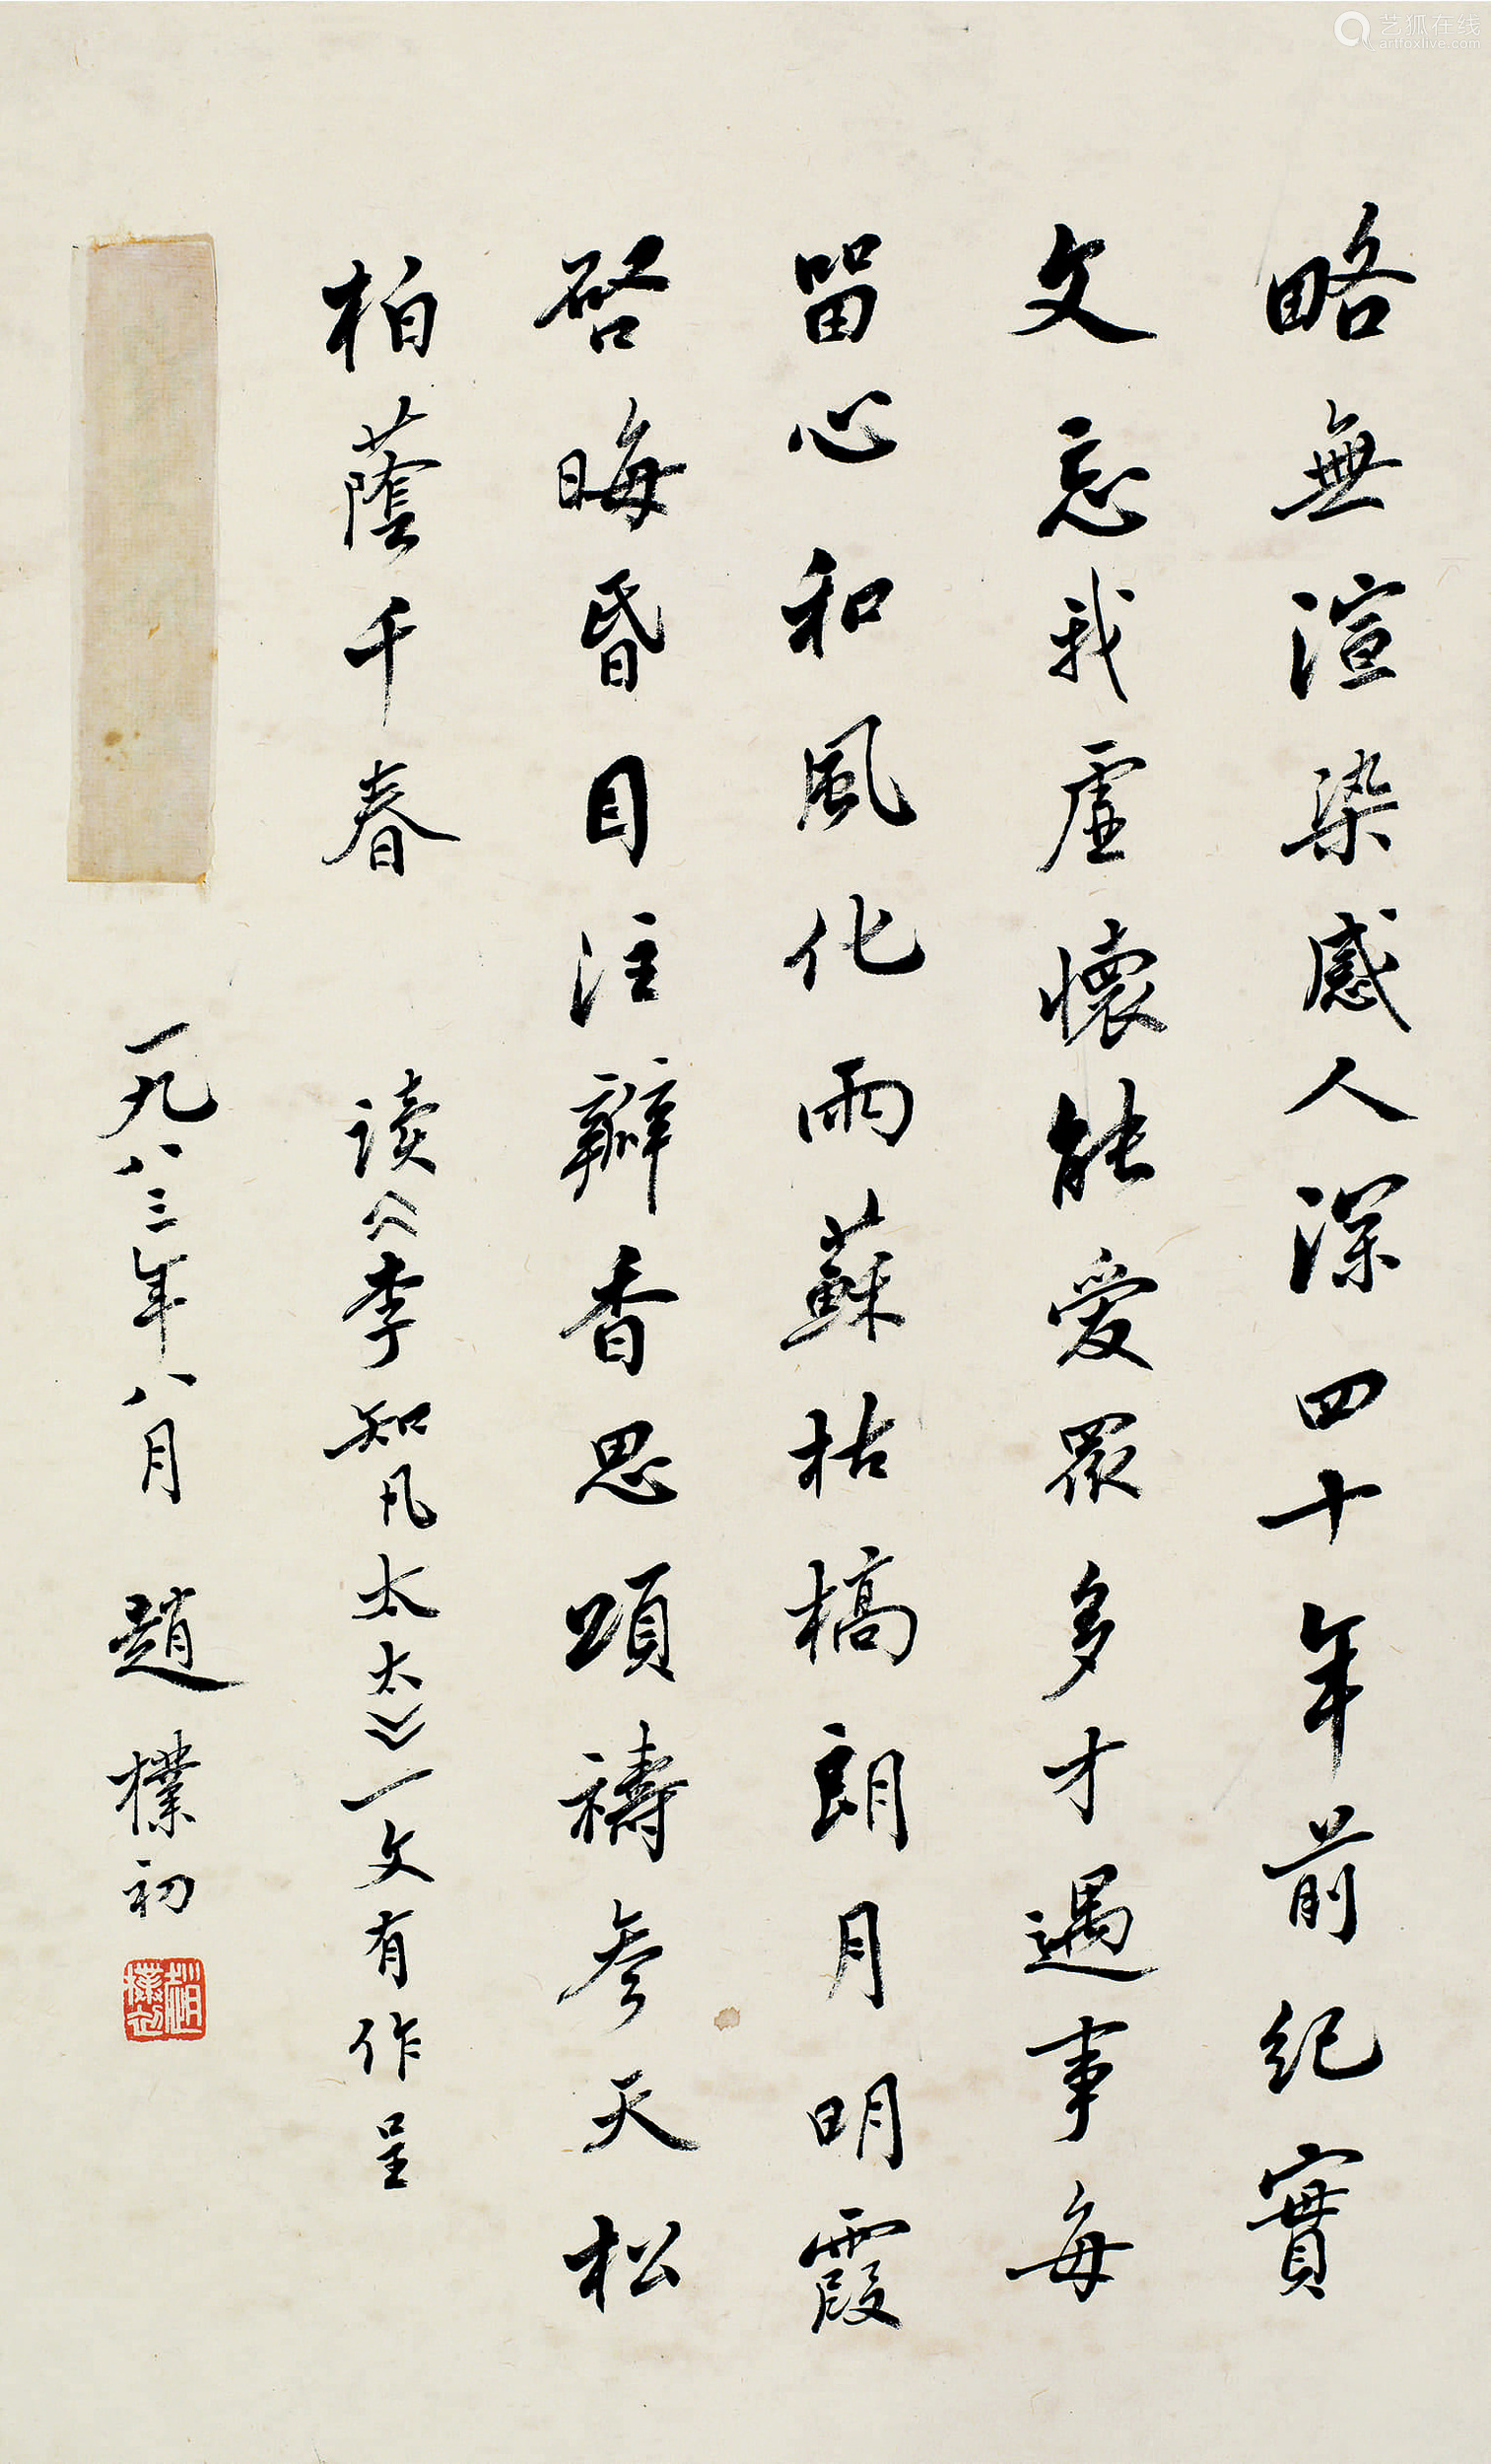 略無渲染感人深四十年前紀實
文忘我虛懷能愛眾多才遇事每
留心和風化雨蘇枯槁朗月明霞
啓晦昏目注瓣香思頌禱參天松
柏蔭千春 读《李知凡太太》一文有作呈
一九八三年八月 趙樸初
趙樸初
艺狐在线
artfoxlive.com